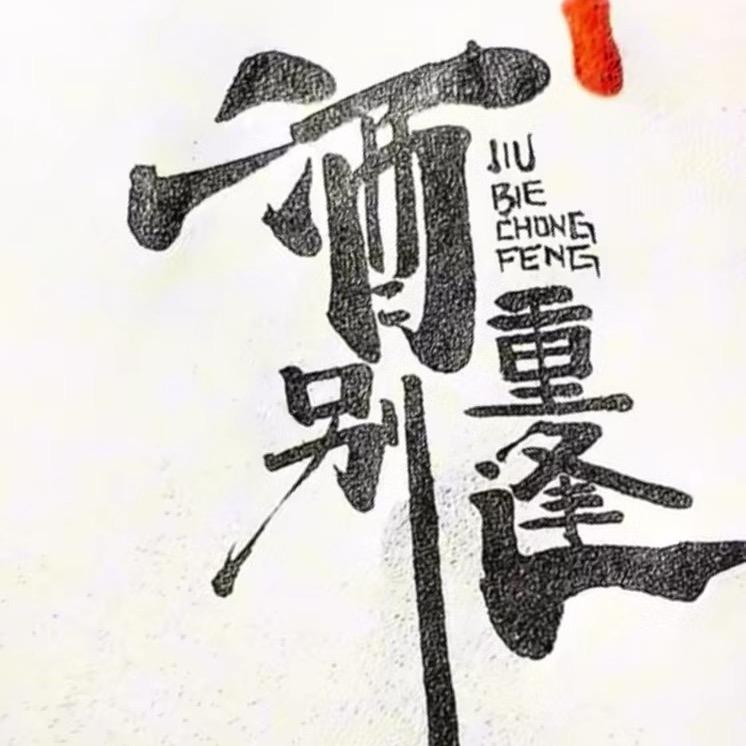 酒别
JIU
BIE
CHONG
FENG
重逢